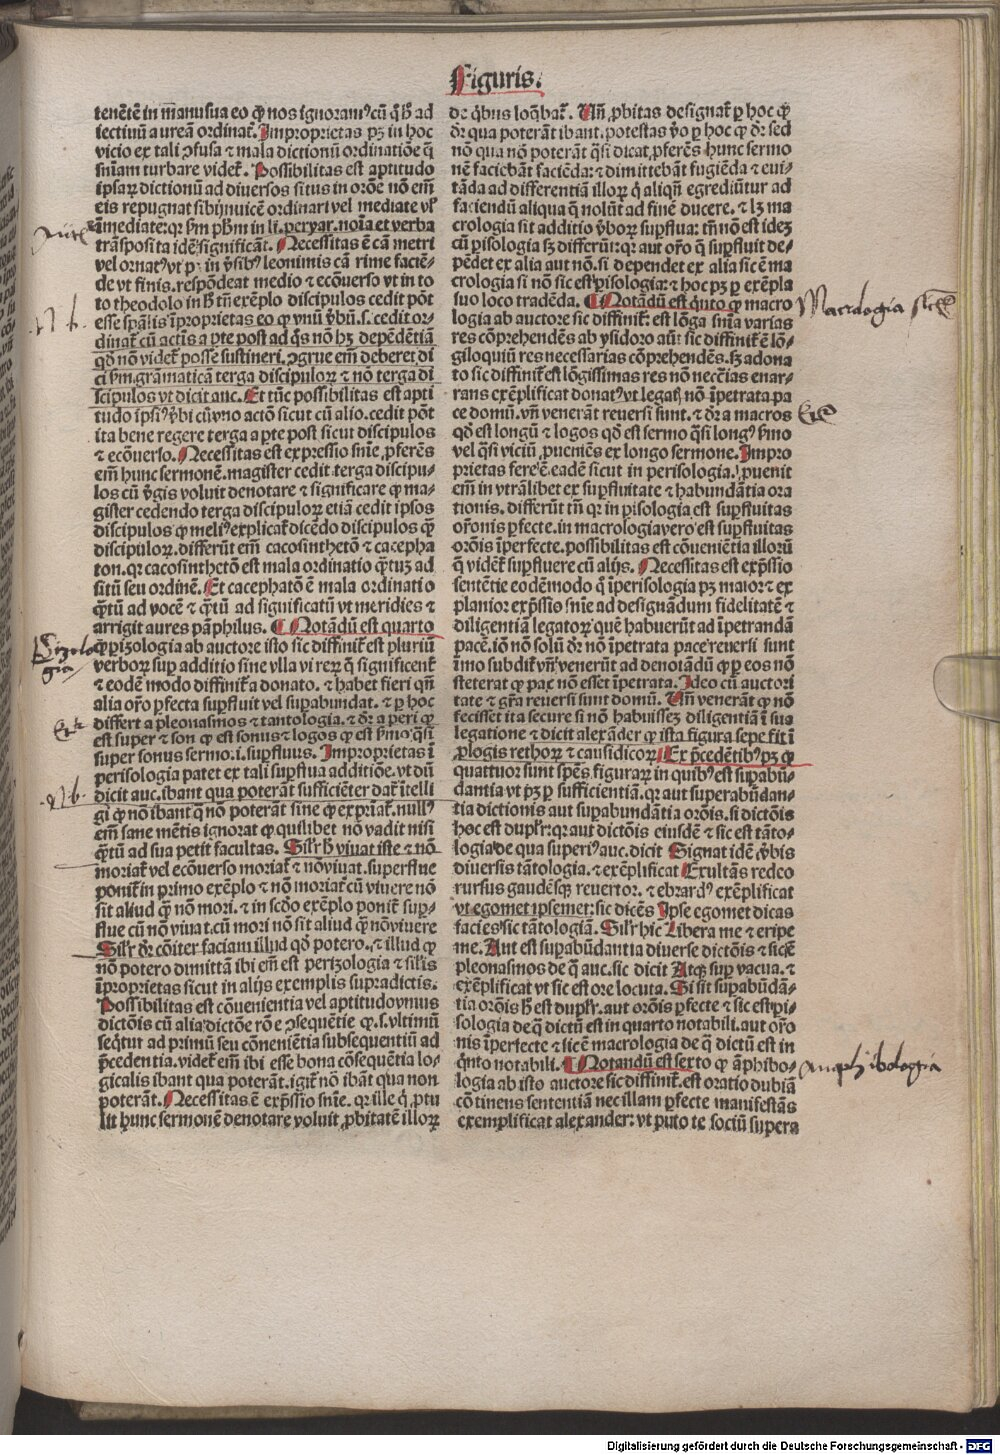 Figuris.
tenētē in manu sua eo qꝫ nos ignoramꝰ cū q̄ hͦ ad
iectiuū aureā ordinat᷑. Improprietas pꝫ in hoc
vicio ex tali ↄfusa & mala dictionū ordinatiōe q̄
sniam turbare videt᷑. Possibilitas est aptitudo
ipsaꝝ dictionū ad diuersos situs in orōe nō em̄
eis repugnat sibijnuicē ordinari vel mediate vl̓
īmediate: qꝛ ẜm pħm in li. peryar. noīa et verba
trāsposita idē significāt. Necessitas ē cā metri
vel ornatꝰ vt pꝫ in v̓sibꝰ leonimis cā rime faciē-
de vt finis. respōdeat medio & ecōuerso vt in to
to theodolo in hͦ tn̄ exēplo discipulos cedit pōt
esse spālis īproprietas eo qꝫ vnū v̓bū. s. cedit or-
dinat᷑ cū actūs a pte post ad q̄s nō hꝫ depēdētiā
qd̓ nō videt᷑ posse sustineri. ↄgrue em̄ deberet di
ci ẜm gramaticā terga discipuloꝝ & nō terga di
scipulos vt dicit auc. Et tūc possibilitas est apti
tudo ipsiꝰ v̓bi cū vno actō sicut cū alio. cedit pōt
ita bene regere terga a pte post sicut discipulos
& ecōuerso. Necessitas est expressio snīe, pferēs
em̄ hunc sermonē. magister cedit terga discipu-
los cū v̓gis voluit denotare & significare qꝫ ma-
gister cedendo terga discipuloꝝ etiā cedit ipsos
discipulos qꝫ meliꝰ explicat᷑ dicēdo discipulos q̄ꝫ
discipuloꝝ. differūt em̄ cacosinthetō & cacepha
ton. qꝛ cacosinthetō est mala ordinatio q̄tuꝫ ad
sitū seu ordinē. Et cacephatō ē mala ordinatio
q̄tū ad vocē & q̄tū ad significatū vt meridies &
arrigit aures pāphilus. ¶ Notādū est quarto
qꝫ pizologia ab auctore isto sic diffinit᷑ est pluriū
verboꝝ sup additio sine vlla vi reꝝ q̄ significent᷑
& eodē modo diffinit᷑ a donato. & habet fieri qn̄
alia or̄o pfecta supfluit vel supabundat. & p hoc
differt a pleonasmos & tantologia. & dr̄ a peri qꝫ
est super & son qꝫ est sonus & logos qꝫ est ẜmo q̄si
super sonus sermo. i. supfluus. Improprietas ī
perisologia patet ex tali supflua additiōe. vt dū
dicit auc. ibant qua poterāt sufficiēter dat᷑ ītelli
gi qꝫ nō ibant q̄ nō poterāt sine qꝫ exprīat᷑. nullꝰ
em̄ sane mētis ignorat qꝫ quilibet nō vadit nisi
q̄tū ad sua petit facultas. Silr̄ hͦ viuat iste & nō
moriat᷑ vel ecōuerso moriat᷑ & nō viuat. superflue
ponit᷑ in primo exēplo & nō moriat᷑ cū viuere nō
sit aliud q̄ꝫ nō mori. & in scd̓o exēplo ponit᷑ sup-
flue cū nō viuat. cū mori nō sit aliud q̄ꝫ nō viuere
Silr̄ dr̄ cōiter faciam illud qd̓ potero. & illud qꝫ
nō potero dimittā ibi em̄ est perizologia & sil̓is
īproprietas sicut in alijs exemplis supradictis.
Possibilitas est cōuenientia vel aptitudo vnius
dictōis cū alia dictōe rōe ↄsequētie qꝫ. s. vltimū
seq̄tur ad primū seu cōueniētia subsequentiū ad
p̄cedentia. videt᷑ em̄ ibi esse bona cōsequētia lo-
gicalis ibant qua poterāt. igit᷑ nō ibāt qua non
poterāt. Necessitas ē exp̄ssio snīe. qꝛ ille q̄ ptu
lit hunc sermonē denotare voluit pbitatē illoꝝ
de q̄bus loq̄bat᷑. Vn̄ pbitas designat᷑ p hoc qꝫ
dr̄ qua poterāt ibant. potestas v̓o p hoc qꝫ dr̄ sed
nō qua nō poterāt q̄si dicat, pferēs hunc sermo
nē faciebāt faciēda: & dimittebāt fugiēda & eui-
tāda ad differentiā illoꝝ q̄ aliqn̄ egrediūtur ad
faciendū aliqua q̄ nolūt ad finē ducere. & lꝫ ma
crologia sit additio v̓boꝝ supflua: tn̄ nō est ideꝫ
cū pisologia sꝫ differūt: qꝛ aut or̄o q̄ supfluit de-
pēdet ex alia aut nō. si dependet ex alia sic ē ma
crologia si nō sic est pisologia: & hoc pꝫ p exēpla
suo loco tradēda. ¶ Notādū est q̄nto qꝫ macro
logia ab auctore sic diffinit᷑: est lōga snīa varias
res cōprehendēs ab ysidoro aūt sic diffinit᷑ ē lō-
giloquiū res necessarias cōprehendēs. sꝫ a dona
to sic diffinit᷑ est lōgissimas res nō necc̄ias enar-
rans exēplificat donatꝰ vt legati nō īpetrata pa
ce domū. vn̄ venerāt reuersi sunt. & dr̄ a macros
qd̓ est longū & logos qd̓ est sermo q̄si longꝰ ẜmo
vel q̄si viciū pueniēs ex longo sermone. Impro
prietas fere ē eadē sicut in perisologia. puenit
em̄ in vtrālibet ex supfluitate & habundātia ora
tionis. differūt tn̄ qꝛ in pisologia est supfluitas
or̄onis pfecte. in macrologia vero est supfluitas
orōis īperfecte. possibilitas est cōueniētia illorū
q̄ videt᷑ supfluere cū alijs. Necessitas est exp̄ssio
sentētie eodē modo q̄ īperisologia pꝫ maior & ex
planior exp̄ssio snīe ad designādum fidelitatē &
diligentiā legatoꝝ quē habuerūt ad īpetrandā
pacē. iō nō solū dr̄ nō īpetrata pace reuersi sunt
īmo subdit᷑ vn̄ venerūt ad denotādū qꝫ p eos nō
steterat qꝫ pax nō esset īpetrata. Ideo cū auctori
tate & gr̄a reuersi sunt domū. Vn̄ venerāt qꝫ nō
fecisset ita secure si nō habuisseꝫ diligentiā ī sua
legatione & dicit alexāder qꝫ ista figura sepe fit ī
plogis rethoꝝ & causidicoꝝ ¶ Ex p̄cedētibꝰ pꝫ qꝫ
quattuor sunt spēs figuraꝝ in quibꝰ est supabū-
dantia vt pꝫ p sufficientiā. qꝛ aut superabūdan-
tia dictionis aut supabundātia orōis. si dictōis
hoc est duplr̄: qꝛ aut dictōis eiusdē & sic est tāto-
logia de qua superiꝰ auc. dicit Signat idē v̓bis
diuersis tātologia. & exēplificat Exultās redeo
rursus gaudēsqꝫ reuertor. & ebrardꝰ exēplificat
vt egomet ipsemet: sic dicēs Ipse egomet dicas
facies sic tātologiā. Silr̄ hic Libera me & eripe
me. Aut est supabūdantia diuerse dictōis & sic ē
pleonasmos de q̄ auc. sic dicit Atqꝫ sup vacua. &
exēplificat vt sic est ore locuta. Si sit supabūdā-
tia orōis hͦ est duplr̄. aut orōis pfecte & sic est pi-
sologia de q̄ dictū est in quarto notabili. aut or̄o
nis īperfecte & sic ē macrologia de q̄ dictū est in
q̄nto notabili. ¶ Notandū est sexto qꝫ āphibo-
logia ab isto auctore sic diffinit᷑. est oratio dubiā
cōtinens sententiā nec illam pfecte manifestās
exemplificat alexander: vt puto te sociū supera
N b.
Pizolo
gia
N b.
Macrologia
amphibologia
Digitalisierung gefördert durch die Deutsche Forschungsgemeinschaft - DFG